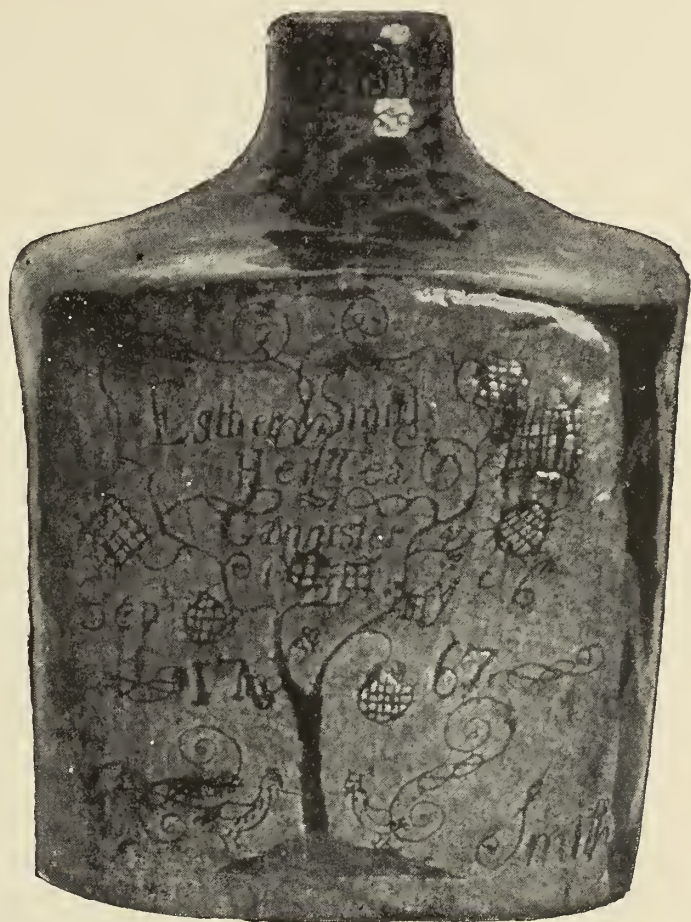 Esther Smith
Her Tea
Cannister
Sepᵗ 6ᵗʰ
1767
Smith